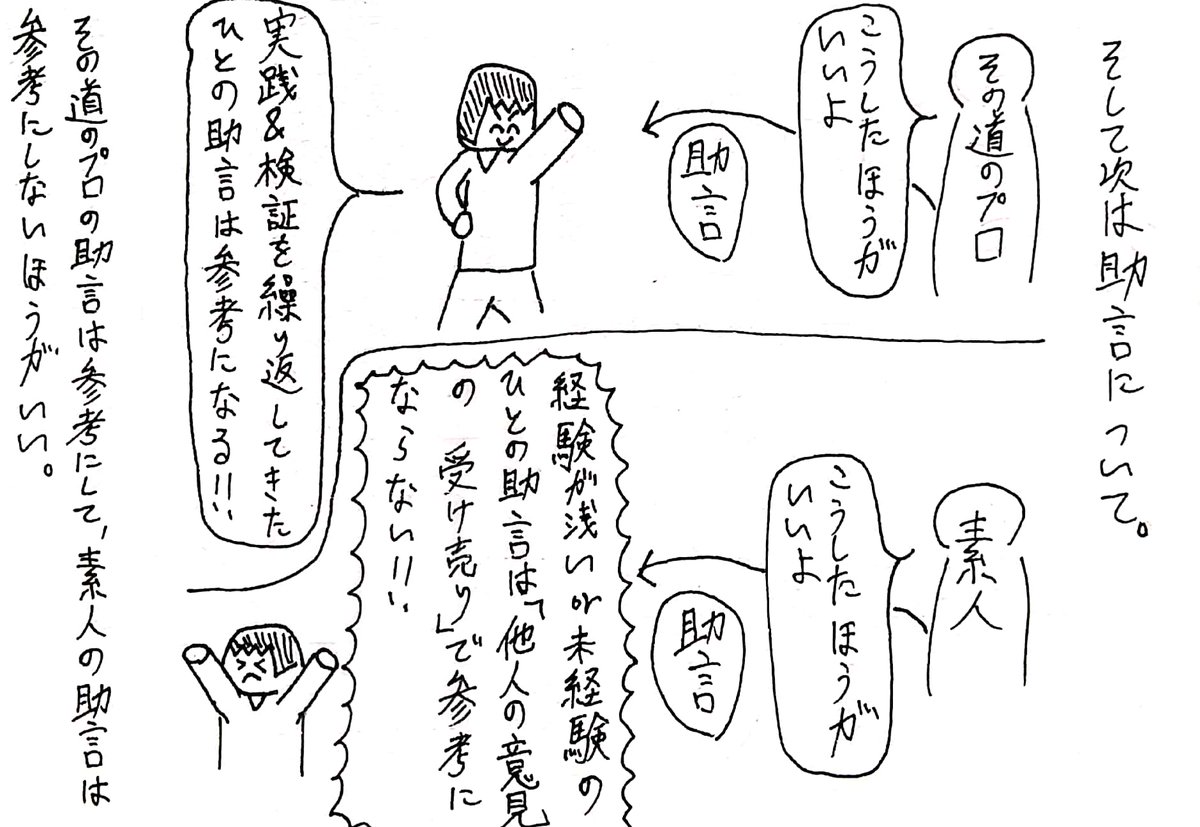 そして次は助言について。
その道のプロ
こうしたほうが
いいよ
助言
実践&検証を繰り返してきた
ひとの助言は参考になる!!
素人
こうしたほうが
いいよ
助言
経験が浅いor未経験の
ひとの助言は「他人の意見
の受け売り」で参考に
ならない!!
その道のプロの助言は参考にして、素人の助言は
参考にしないほうがいい。